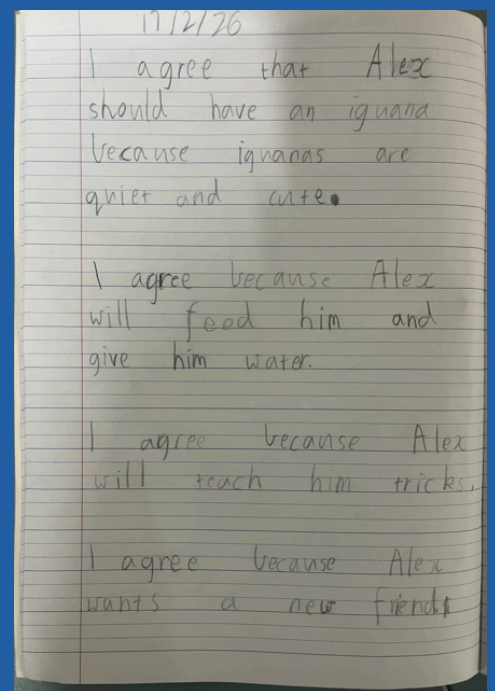 17/2/26
I agree that Alex
should have an iguana
because iguanas are
quiet and cute.
I agree because Alex
will feed him and
give him water.
I agree because Alex
will teach him tricks.
I agree because Alex
wants a new friend